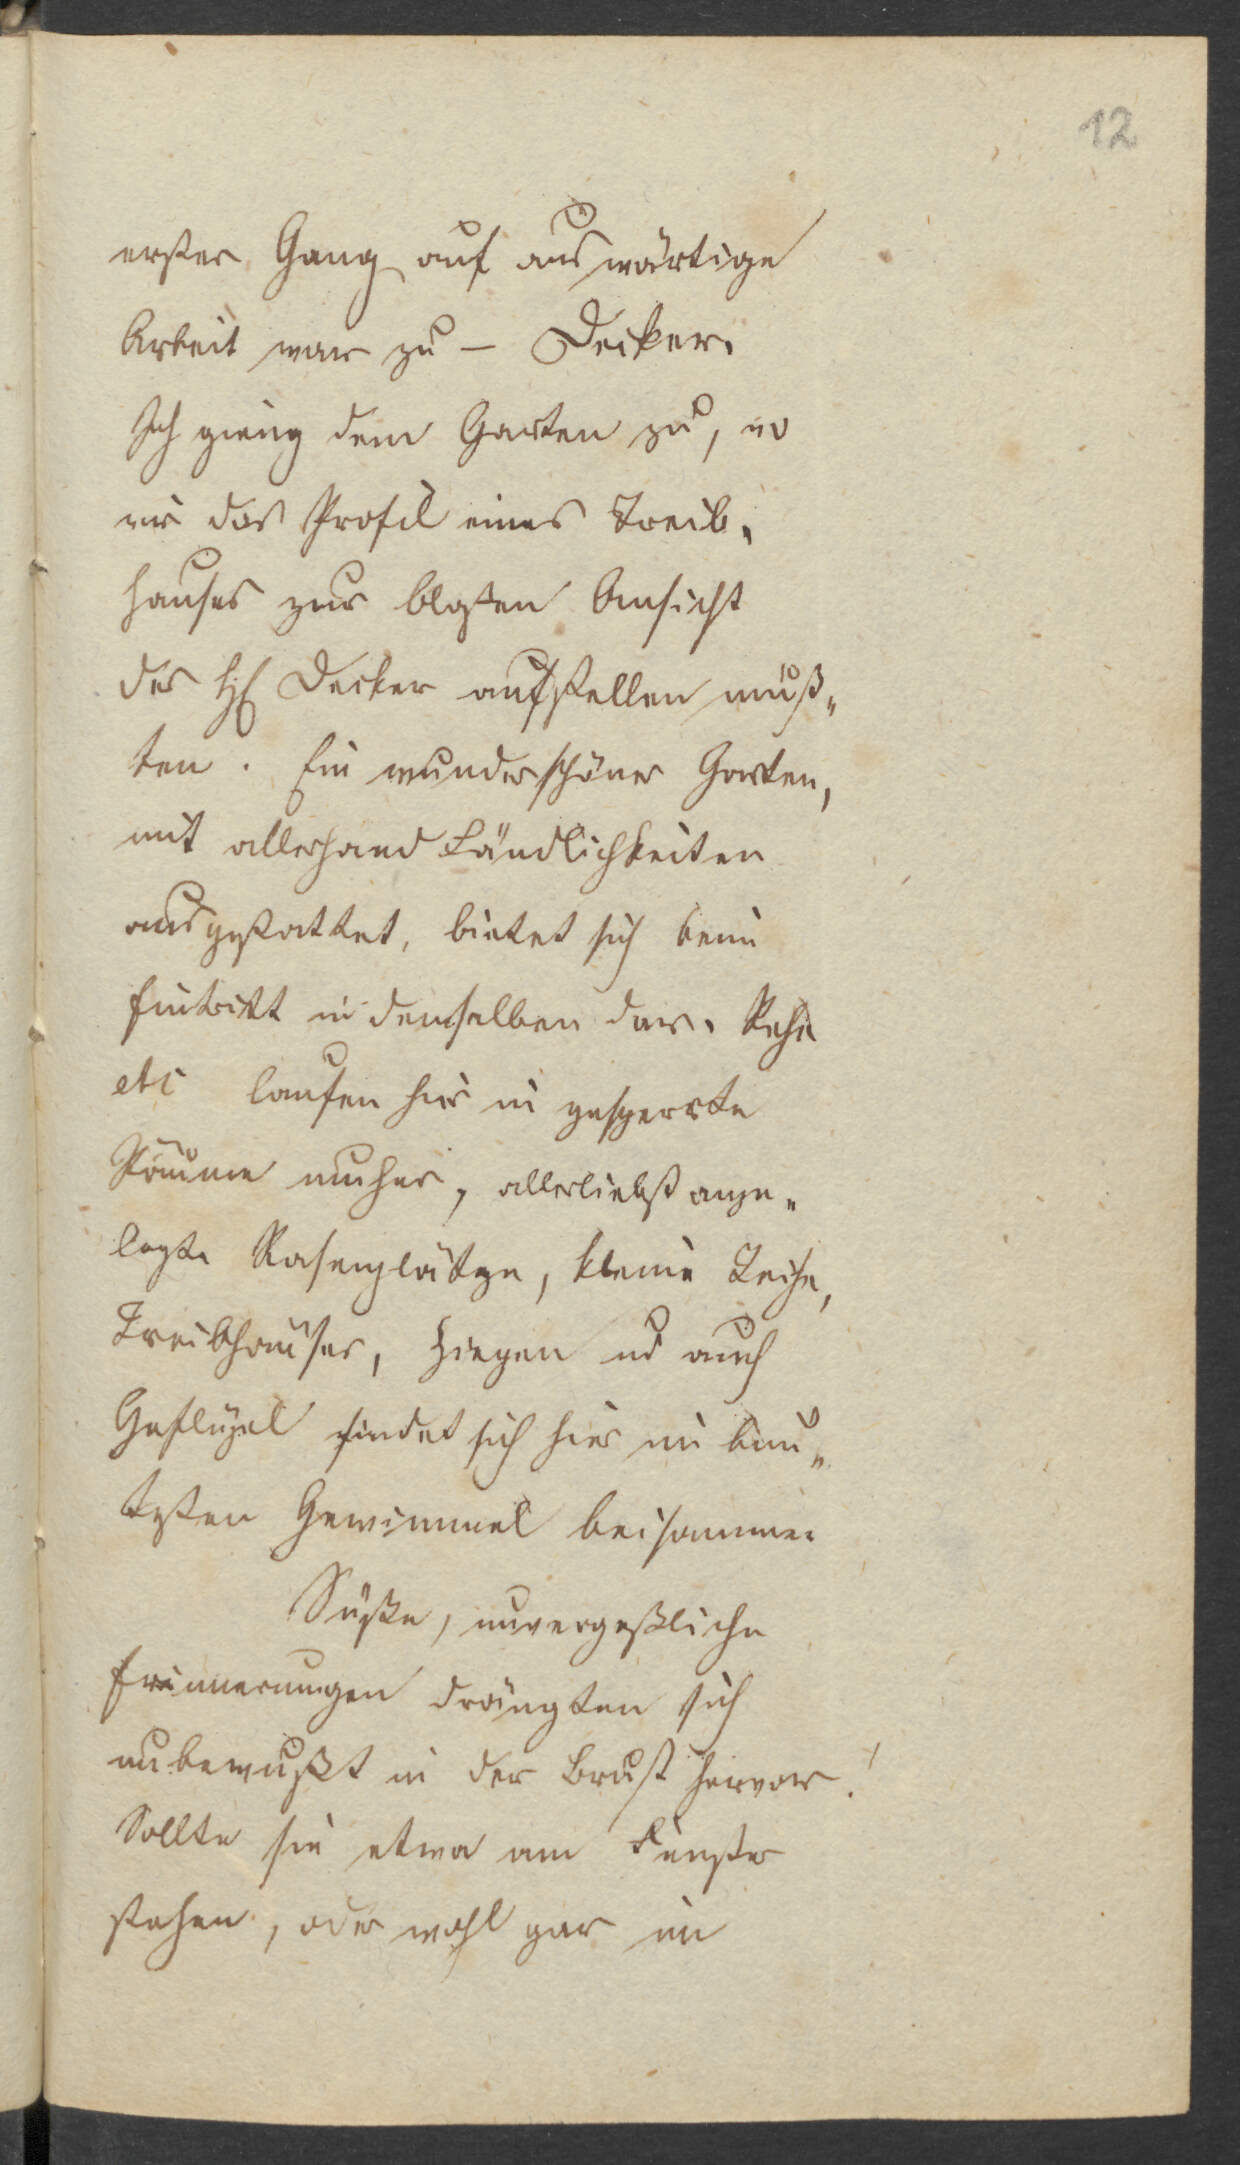 12
erster Gang auf auswärtige
Arbeit war zu – Decker.
Ich gieng dem Garten zu, wo
wir das Profil eines Treib„
hauses zur bloßen Ansicht
des H Decker aufstellen muß„
ten. Ein wunderschöner Garten,
mit allerhand Ländlichkeiten
ausgestattet, bietet sich beim
Eintritt in demselben dar. Rehe
etc laufen hier in gesperrte
Räume umher, allerliebst ange„
legte Rasenplätze, kleine Teiche,
Treibhäuser, Ziegen und auch
Geflügel findet sich hier im bun„
testen Gewimmel beisammen
Süße, unvergeßliche
Erinnerungen drängten sich
unbewußt in der Brust hervor!
Sollte sie etwa am Fenster
stehen, oder wohl gar im